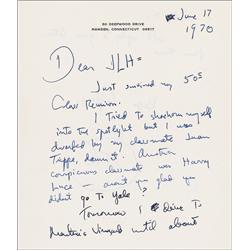 90 DEEPWOOD DRIVE
HAMDEN, CONNECTICUT 06517
June 17
1970
Dear JLH=
Just survived my 50th
Class Reunion.
I tried to shoehorn myself
into the spotlight but I was
dwarfed by my classmate Juan
Trippe, damn it. Another
conspicuous classmate was Harry
Luce — aren't you glad you
didn't go to Yale?
Tomorrow I drive to
Martha's Vineyard until about